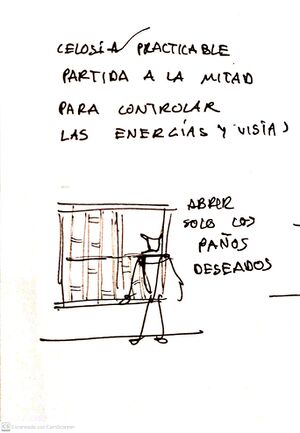 CELOSÍA PRACTICABLE
PARTIDA A LA MITAD
PARA CONTROLAR
LAS ENERGÍAS Y VISTAS
ABRIR
SOLO LOS
PAÑOS
DESEADOS
CS Escaneado con CamScanner